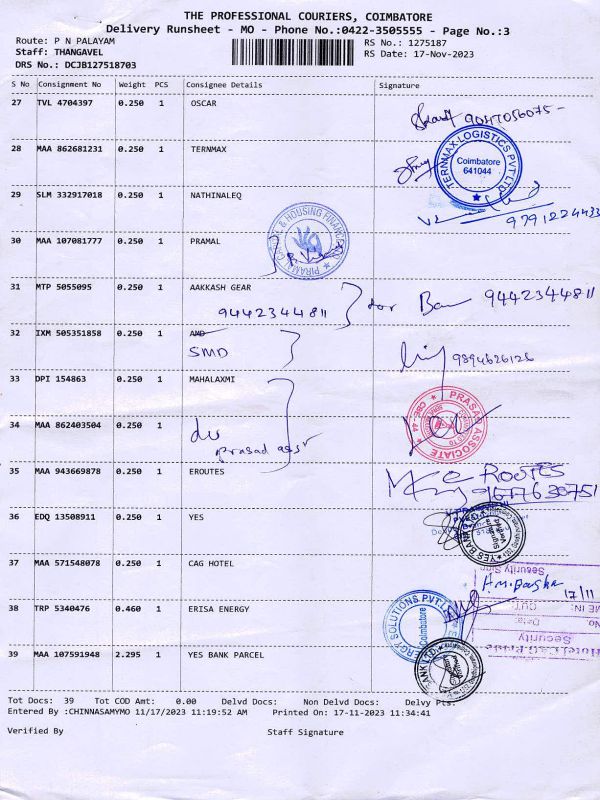 THE PROFESSIONAL COURIERS, COIMBATORE
Delivery Runsheet - MO - Phone No.:0422-3505555 - Page No.:3
Route: P N PALAYAM RS No.: 1275187
Staff: THANGAVEL RS Date: 17-Nov-2023
DRS No.: DCJB127518703
S No Consignment No Weight PCS Consignee Details Signature
27 TVL 4704397 0.250 1 OSCAR
9047056075-
28 MAA 862681231 0.250 1 TERNMAX
TERNMAX LOGISTICS PVT LTD
Coimbatore
641044
29 SLM 332917018 0.250 1 NATHINALEQ
9791224433
30 MAA 107081777 0.250 1 PRAMAL
& HOUSING FINANCE
31 MTP 5055095 0.250 1 AAKKASH GEAR
9442344811 for 9442344811
32 IXM 505351858 0.250 1 AMD
SMD 9894626126
33 DPI 154863 0.250 1 MAHALAXMI
PRASAD ASSOCIATE
CBE-44
34 MAA 862403504 0.250 1
prasad assr
35 MAA 943669878 0.250 1 EROUTES
ROUTES
36 EDQ 13508911 0.250 1 YES
YES BANK
Signature
Verified
37 MAA 571548078 0.250 1 CAG HOTEL
Security
17/11
38 TRP 5340476 0.460 1 ERISA ENERGY
SOLUTIONS PVT.
Coimbatore
OUT:
Date:
Security
39 MAA 107591948 2.295 1 YES BANK PARCEL
BANK LTD
Tot Docs: 39 Tot COD Amt: 0.00 Delvd Docs: Non Delvd Docs: Delvy Pts:
Entered By :CHINNASAMYMO 11/17/2023 11:19:52 AM Printed On: 17-11-2023 11:34:41
Verified By Staff Signature